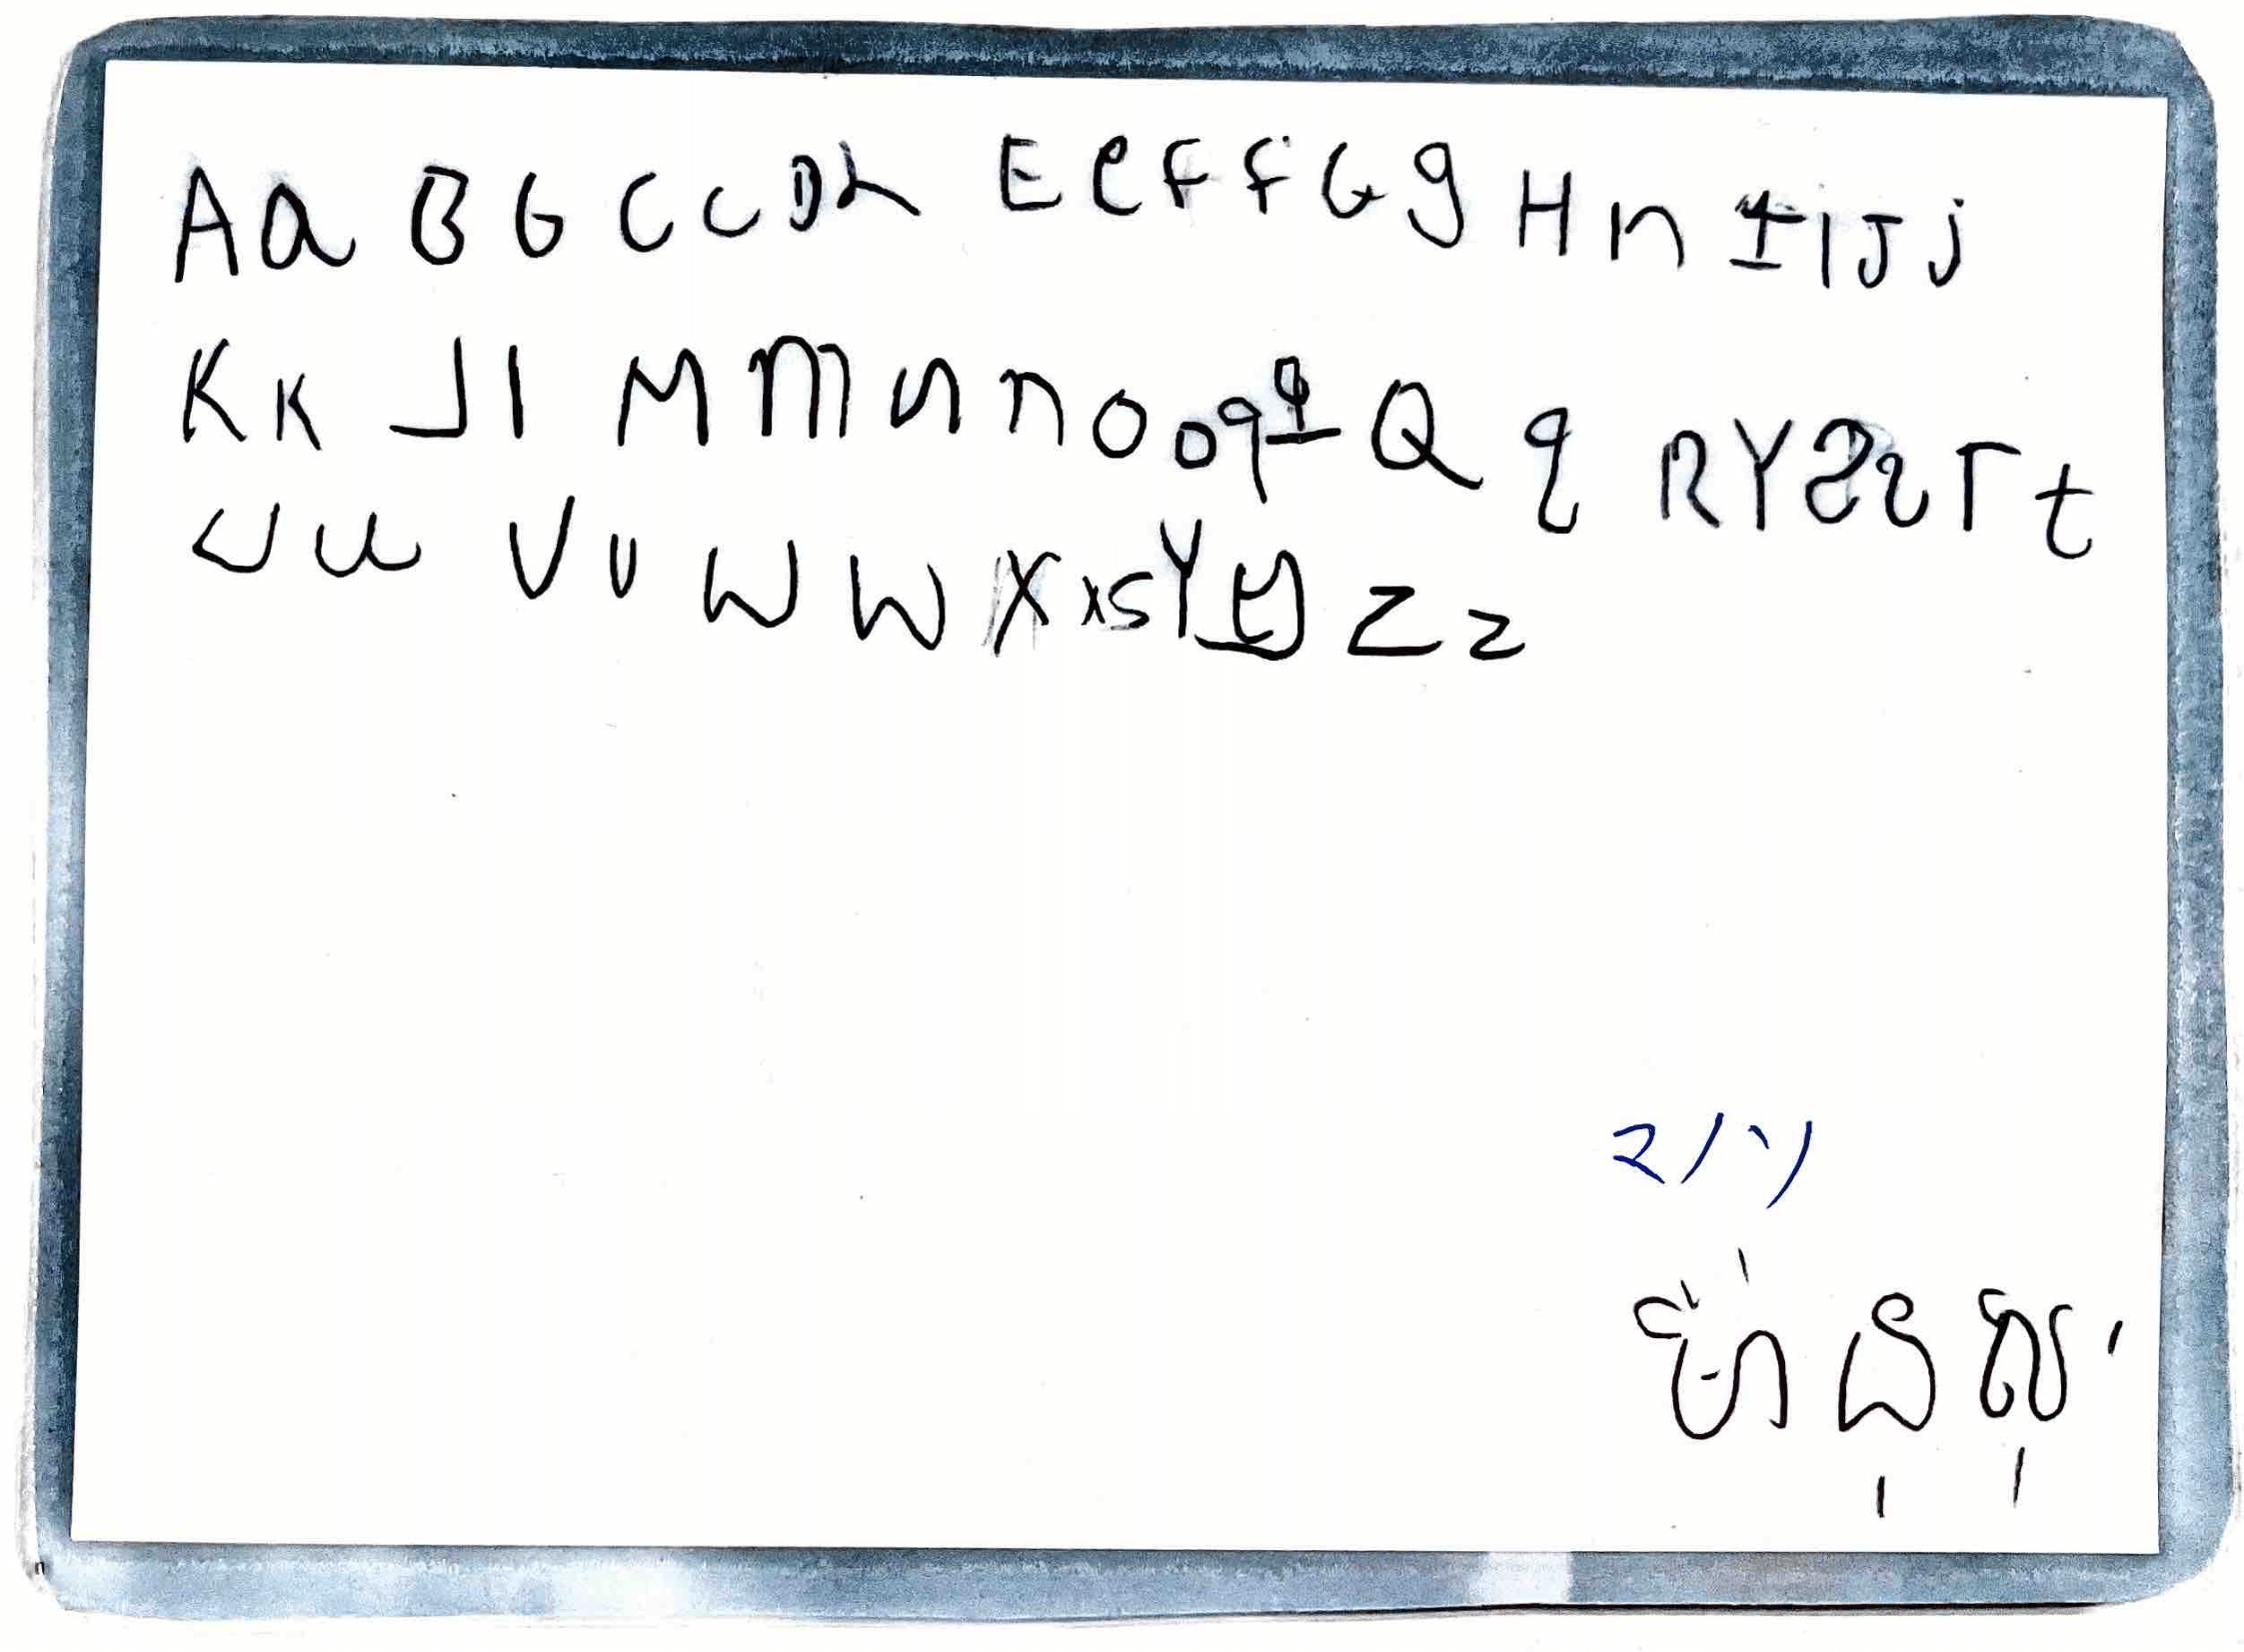 Aa Bb Cc Dd Ee Ff Gg Hh Ii Jj
Kk Ll Mm Nn Oo Pp Qq Rr Ss Tt
Uu Vv Ww Xx Yy Zz
マノソ